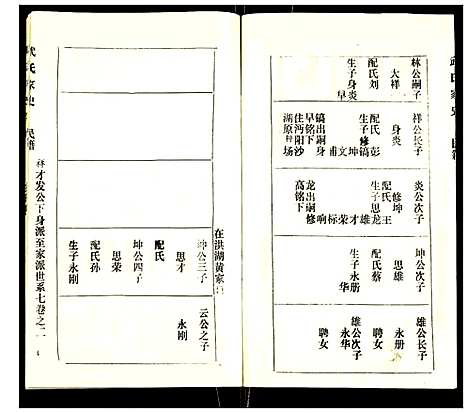 林公嗣子
大祥
配氏刘
生子身炎
早
祥公长子
身炎
配氏彭
生子镐坤文
镐出嗣身
早铭下
住沔阳
湖原种场
炎公次子
修坤
配氏王
生子思龙
雄才荣标响
龙出嗣修
高铭下
坤公次子
思雄
配氏蔡
生子永册
永华
雄公长子
永册
聘女
雄公次子
永华
聘女
在洪湖黄家
坤公三子
思才
配氏
坤公四子
思荣
配氏孙
生子永刚
云公之子
永刚
祥才发公下身派至家派世系七卷之二
氏家史